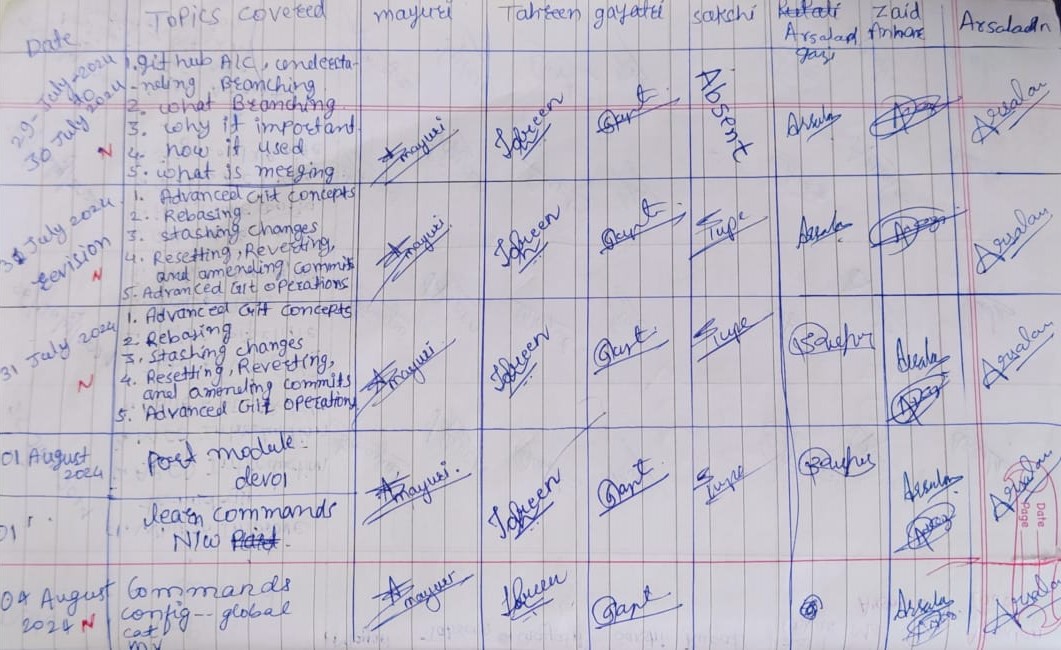 Date Topics covered mayuri Tahreen gayatri sakshi Arsalad gazi Zaid Anhar Arsaladn
29-July-2024
to
30 July 2024
N
1. git hub AIC, understa-
-nding, Branching
2. what Branching
3. why it important
4. how it used
5. what is merging
mayuri Tahreen Gayt Absent Arsala Arsalan
31 July 2024
revision
N
1. Advanced Git concepts
2. Rebasing
3. stashing changes
4. Resetting, Reverting,
and amending commits
5. Advanced Git operations
mayuri Tahreen Gayt Supe Arsala Arsalan
31 July 2024
N
1. Advanced Git concepts
2. Rebasing
3. Stashing changes
4. Resetting, Reverting,
and amending commits
5. Advanced Git operations
mayuri Tahreen Gayt Supe Arsala Arsalan
01 August
2024
Post module
devo1
mayuri. Tahreen Gayt Supe Arsala Arsalan
01
learn commands
N/w
Date
Page
04 August
2024 N
Commands
config -- global
cat
mv
mayuri Tahreen Gayt Arsala Arsalan